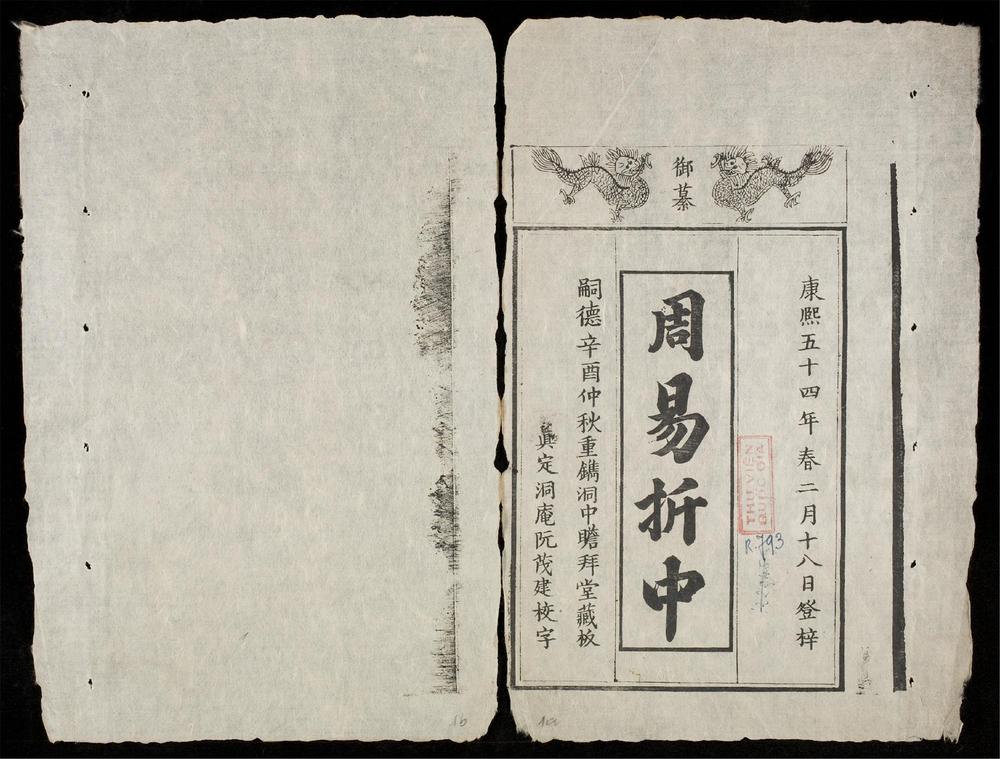 御纂
康熙五十四年春二月十八日登梓
周易折中
嗣德辛酉仲秋重鐫洞中瞻拜堂藏板
真定洞庵阮茂建校字
THU VIEN
QUOC GIA
R.793
1b
1a